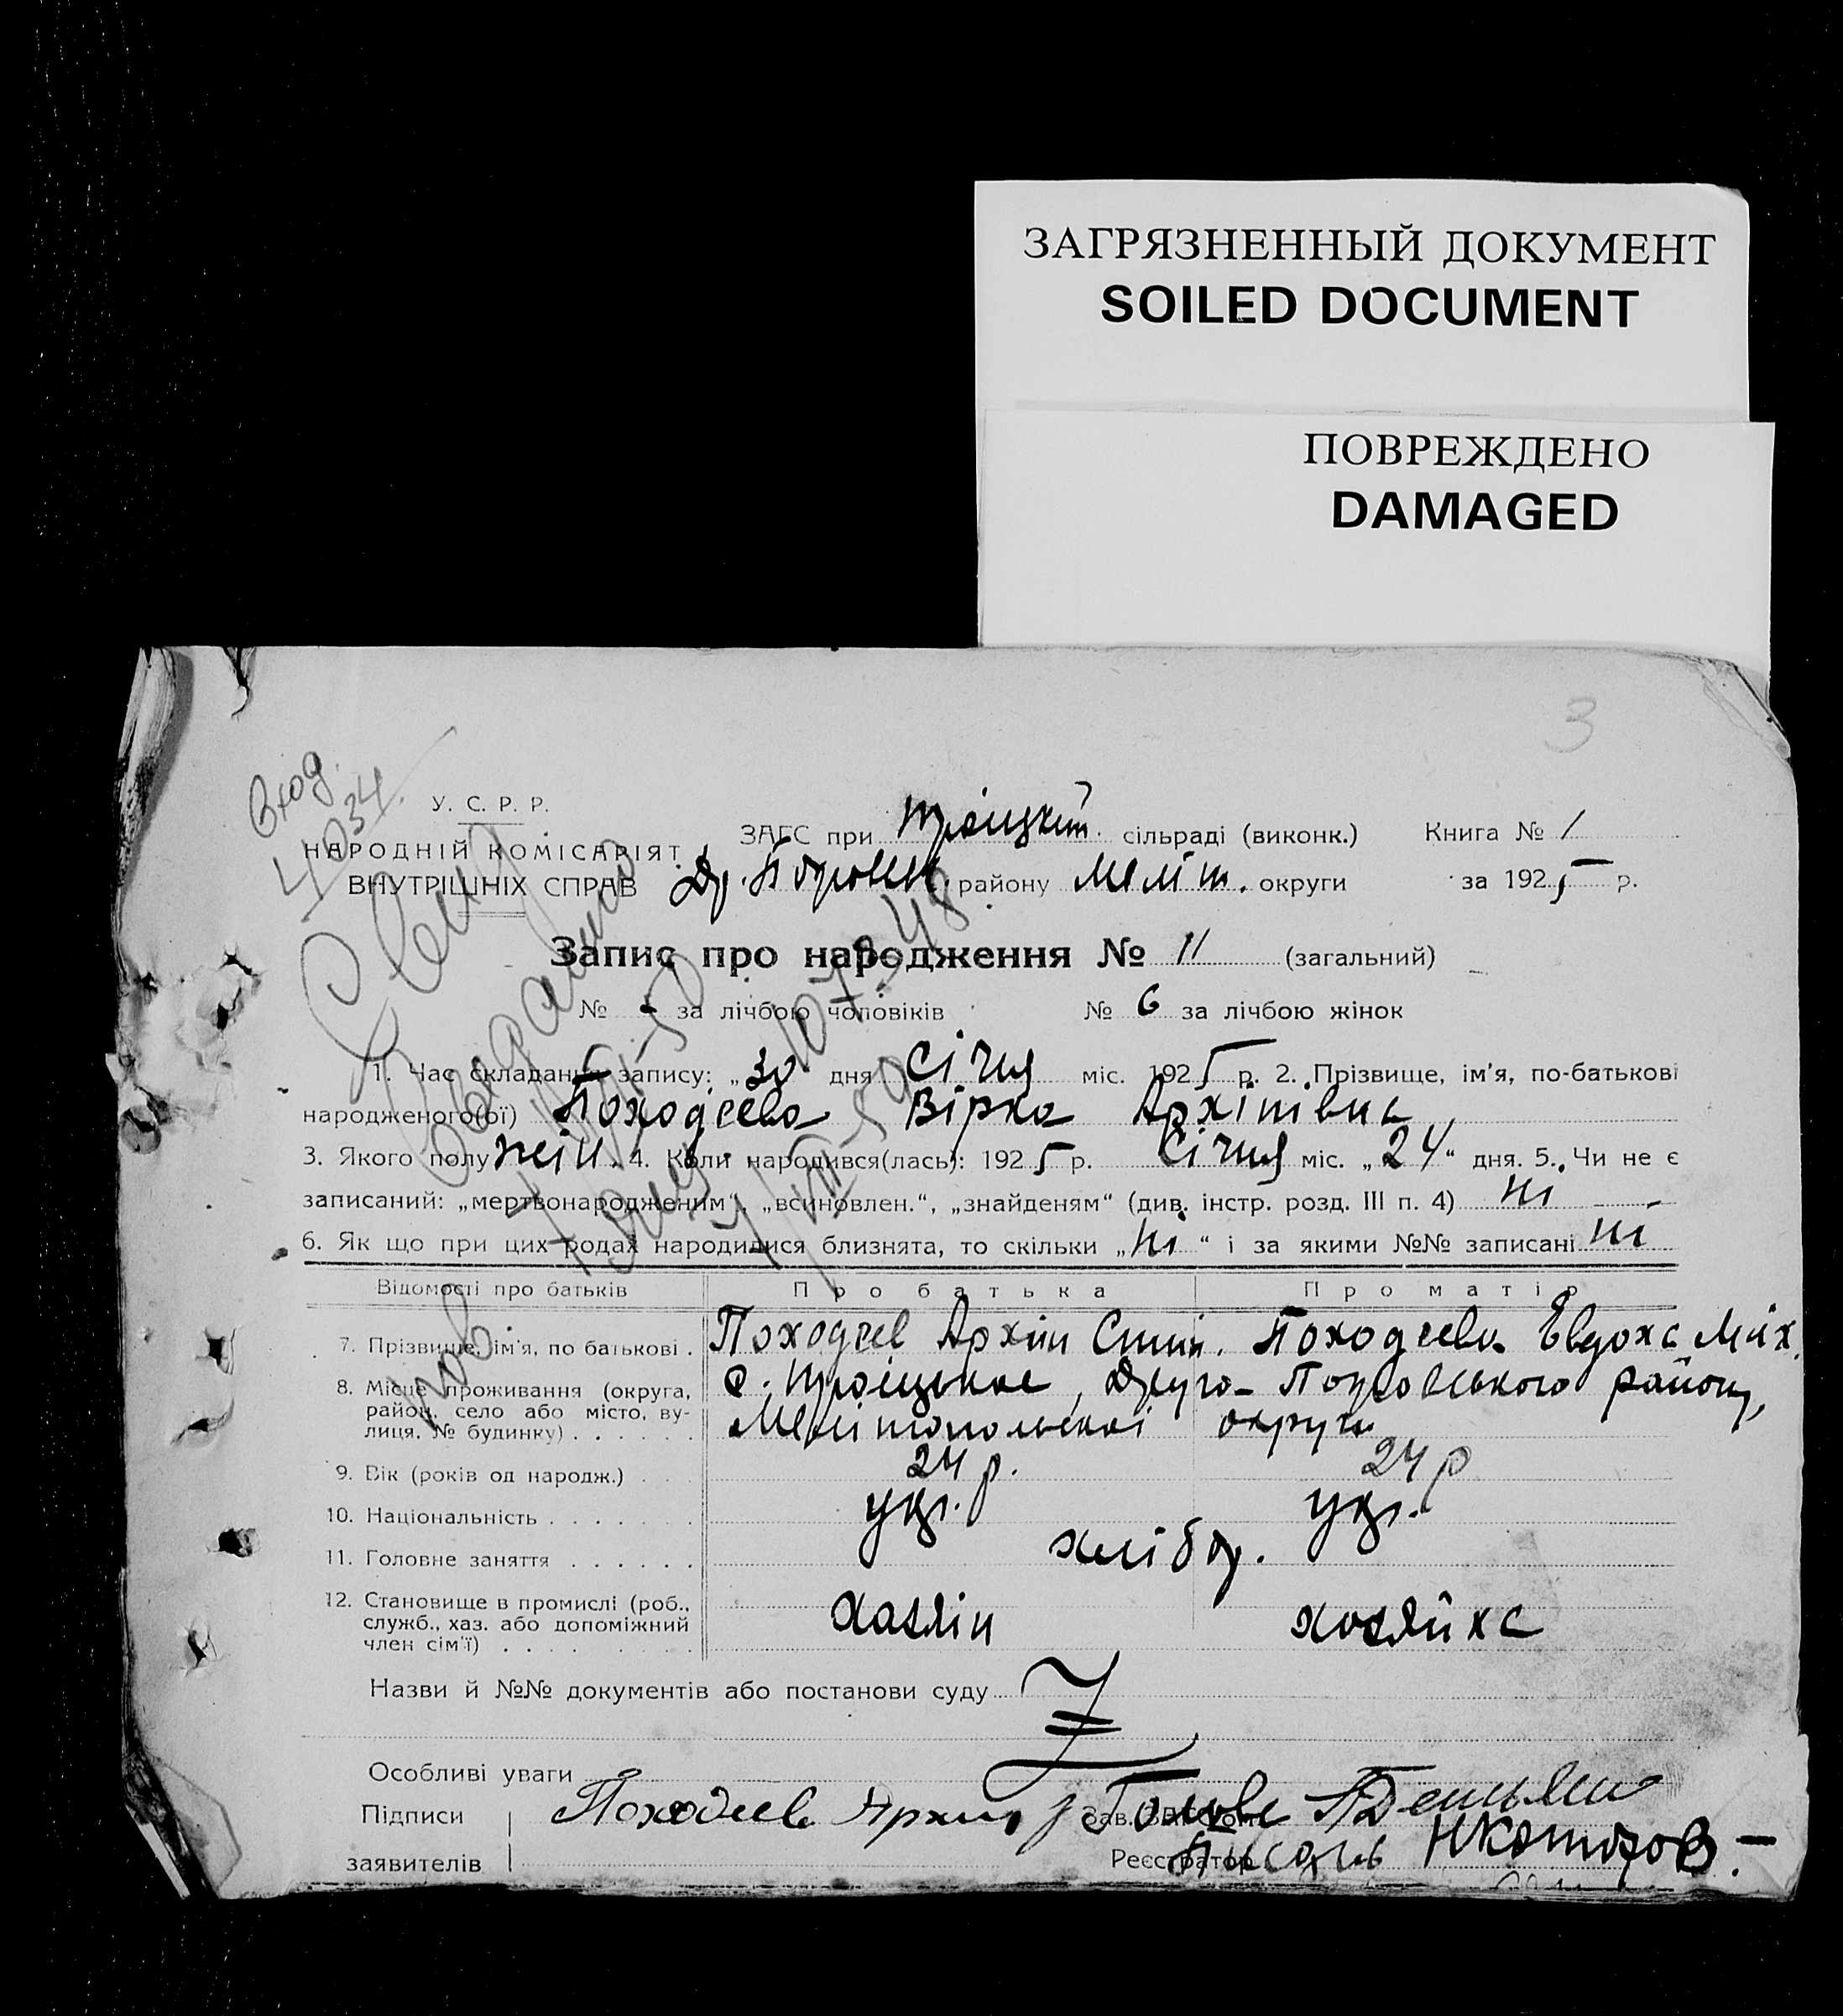 ЗАГРЯЗНЕННЫЙ ДОКУМЕНТ
SOILED DOCUMENT
ПОВРЕЖДЕНО
DAMAGED
3
Вход.
4034.
У. С. Р. Р.
НАРОДНІЙ КОМІСАРІЯТ
ВНУТРІШНІХ СПРАВ
ЗАГС при Троіцкій сільраді (виконк.) Книга № 1
Др. Покровськ. району Меліт. округи за 1925 р.
Запис про народження № 11 (загальний)
№ - за лічбою чоловіків № 6 за лічбою жінок
1. Час складання запису: „30" дня Січня міс. 1925 р. 2. Прізвище, ім'я, по-батькові
народженого(ої) Походєєва Вірка Архіпівна
3. Якого полу жін. 4. Коли народився(лась): 1925 р. Січня міс. „24" дня. 5. Чи не є
записаний: „мертвонародженим", „всиновлен.", „знайденям" (див. інстр. розд. III п. 4) ні
6. Як що при цих родах народилися близнята, то скільки „ні" і за якими №№ записані ні
Відомості про батьків Про батька Про матір
7. Прізвище, ім'я, по батькові . Походєєв Архип Походєєва Евдоха Мих.
8. Місце проживання (округа, район, село або місто, вулиця, № будинку) . . . . . . с. Троіцькое, Друго-Покровського району,
Мелітопольскоі округи
9. Вік (років од народж.) . . . 24 р. 24 р
10. Національність . . . . . . . укр. укр.
11. Головне заняття . . . . . . хлібор.
12. Становище в промислі (роб., служб., хаз. або допоміжний член сім'ї) . . . . . . . . хазяін хозяйка
Назви й №№ документів або постанови суду
Особливі уваги
Підписи Походеев Архип Зав. ЗАГСом Голова
заявителів Реєстратор Писарь